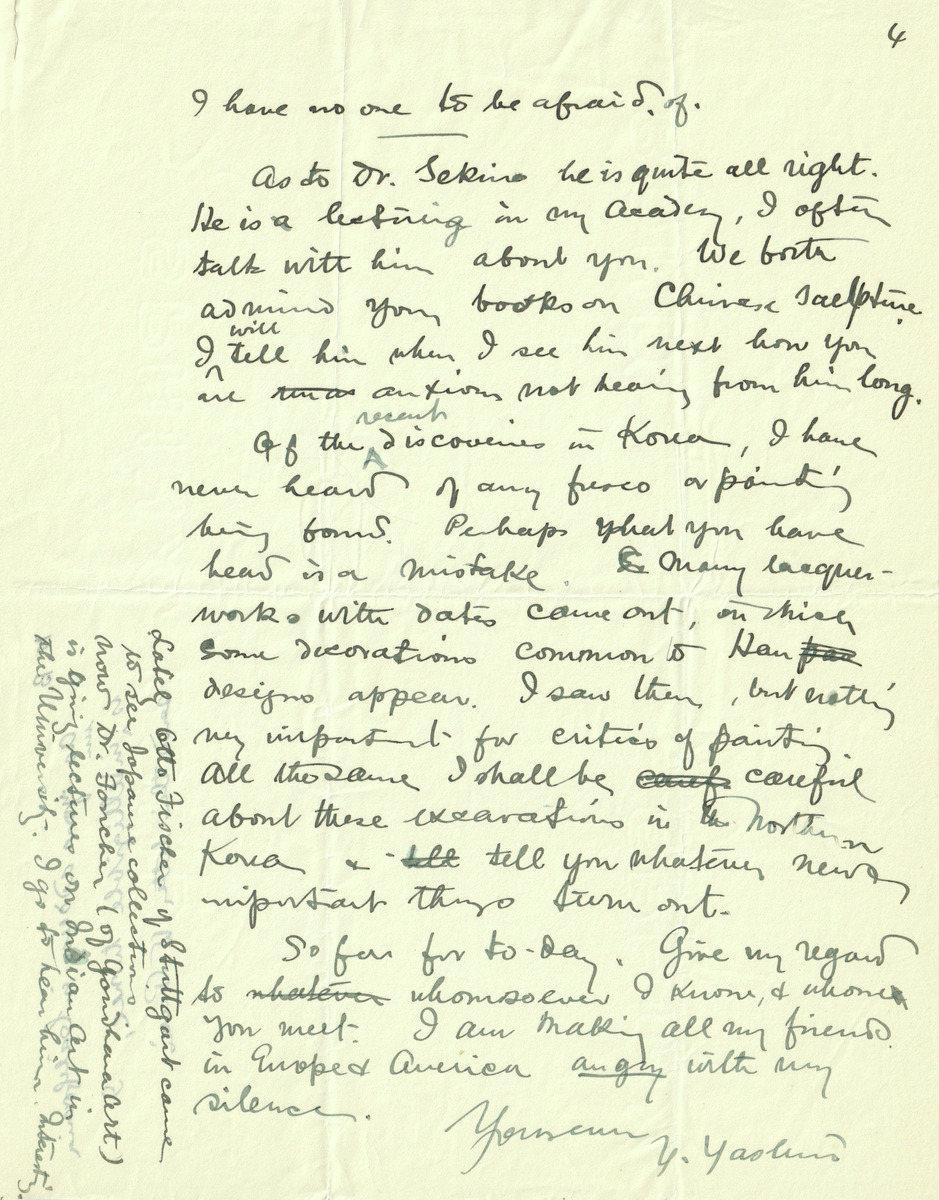 4
I have no one to be afraid. of.
As to Dr. Sekino he is quite all right.
He is a lecturing in my Academy, I often
talk with him about you. We both
admire your books on Chinese Sculpture.
I will tell him when I see him next how you
are anxious not hearing from him long.
Of the recent discoveries in Korea, I have
never heard of any fresco or painting
being found. Perhaps what you have
heard is a mistake. Many lacquer-
works with dates came out, on which
some decorations common to Han
designs appear. I saw them, but nothing
very important for critics of painting.
All the same I shall be careful
about these excavations in the Northern
Korea & tell you whatever news
important things turn out.
So far for to-day. Give my regard
to whomsoever I know, & whome
you meet. I am making all my friends
in Europe & America angry with my
silence.
Yours ever
Y. Yashiro
Lately Otto Fischer of Stuttgart came
to see Japanese collections
now Dr. Foucher (of Gandhara art)
is giving lectures on Indian Art in
the University. I go to hear him. Interesting.